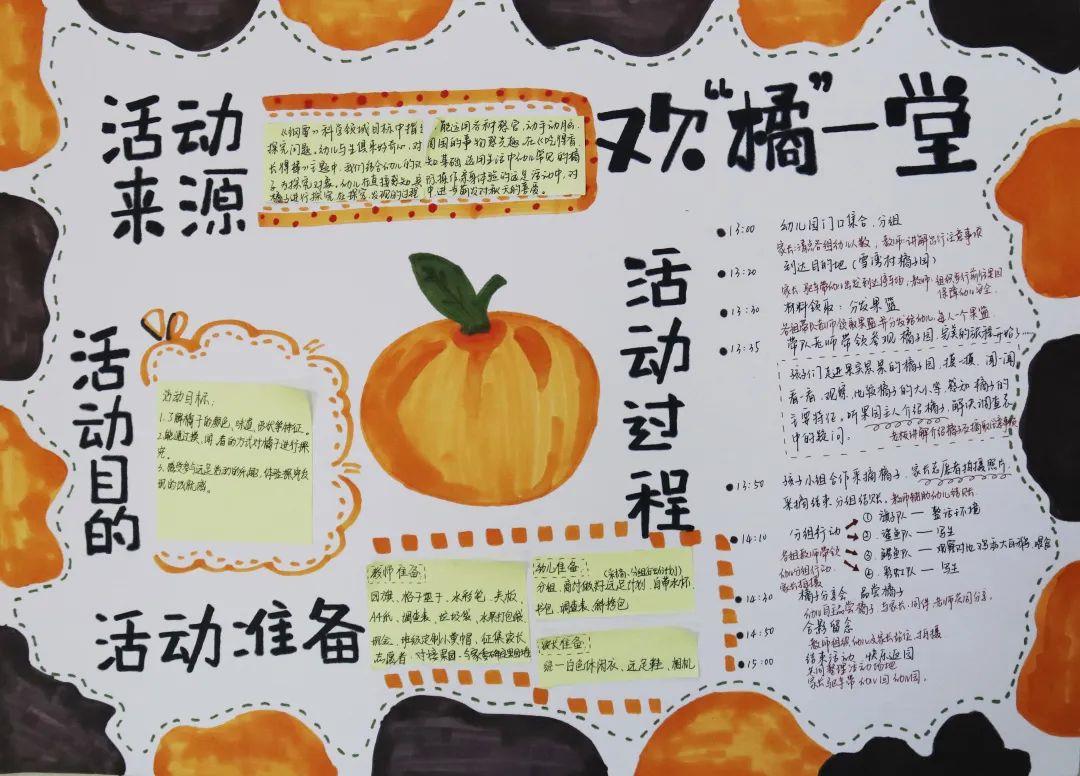 欢“橘”一堂
活动
来源
《纲要》科学领域目标中指出，能运用各种感官，动手动脑，
探究问题。幼儿与生俱来好奇心，对周围的事物感兴趣，在《吃得有
长得棒》主题中，我们结合幼儿的认知基础，选用生活中幼儿常见的橘
子为探究对象，幼儿在直接感知、实际操作、亲身体验的远足活动中，对
橘子进行探究，在探究、发现的过程中进步萌发对秋天的喜爱。
活动目的
活动目标：
1.了解橘子的颜色、味道、形状等特征。
2.能通过摸、闻、看的方式对橘子进行探
究。
3.感受参与远足活动的乐趣，体验探究发
现的成就感。
活动准备
教师准备
园旗、格子垫子、水彩笔、夹板、
A4纸、调查表、垃圾袋、水果打包袋、
现金、班级定制小黄帽、征集家长
志愿者、对接果园
幼儿准备
分组、商讨做好远足计划、自带水杯、
书包、调查表、斜挎包
家长准备
统一白色休闲衣、远足鞋、相机
活动过程
13:00 幼儿园门口集合、分组
家长：清点各组幼儿人数，教师：讲解出行注意事项
13:20 到达目的地（雪湾村橘子园）
家长：驱车带幼儿出发到达停车场，教师：组织步行前往果园
保障幼儿安全.
13:30 材料领取：分发果篮
各组带队老师领取果篮并分发给幼儿，每人一个果篮
13:35 带队老师带领参观橘子园，完美的旅程开始了……
孩子们走进果实累累的橘子园，摸一摸、闻一闻
看一看、观察、比较橘子的大小等，感知橘子的
主要特征。听果园主人介绍橘子，解决调查表
中的疑问。
老板讲解介绍橘子及摘取注意事项
13:50 孩子小组合作采摘橘子，家长志愿者拍摄照片.
采摘结束分组结账。教师辅助幼儿结账
14:10 分组行动
各组教师带领
幼儿分组行动.
家长拍摄
① 旗子队 — 整洁环境
② 鲨鱼队 — 写生
③ 鳄鱼队 —
④ 彩虹队 — 写生
14:30 橘子分享会 品尝橘子
幼儿自主品尝橘子与家长、同伴、老师共同分享。
14:50 合影留念
教师组织幼儿及家长站位，拍摄
15:00 结束活动 快乐返园
共同整理活动场地
家长驱车带幼儿回幼儿园。